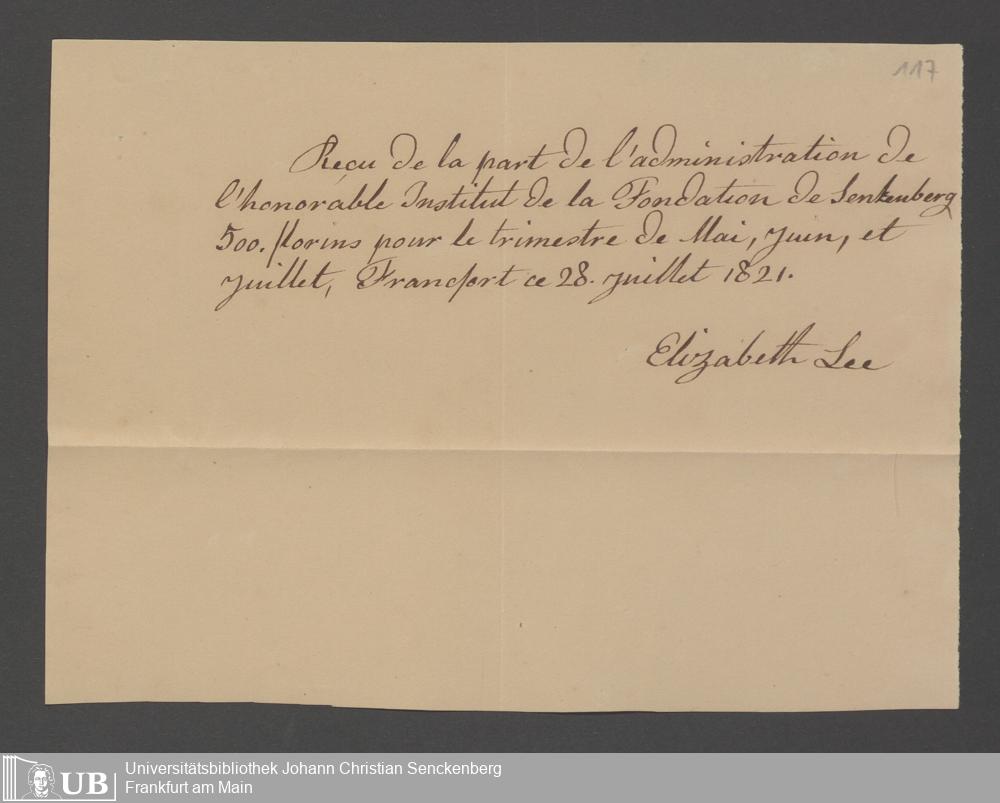 117
Reçu de la part de l'administration de
l'honorable Institut de la Fondation de Senkenberg
500. florins pour le trimestre de Mai, juin, et
juillet, Francfort ce 28. juillet 1821.
Elizabeth Lee
UB
Universitätsbibliothek Johann Christian Senckenberg
Frankfurt am Main